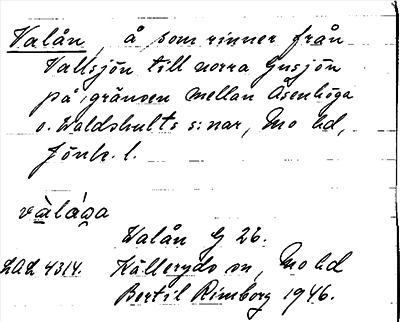 Valån, å som rinner från
Vallsjön till norra Gussjön
på gränsen mellan Åsenhöga
o. Valdshults s:nar, Mo hd,
Jönk. l.
vàlága
Valån G 26.
LAL 4314. Källeryds sn, Mo hd
Bertil Rimborg 1946.